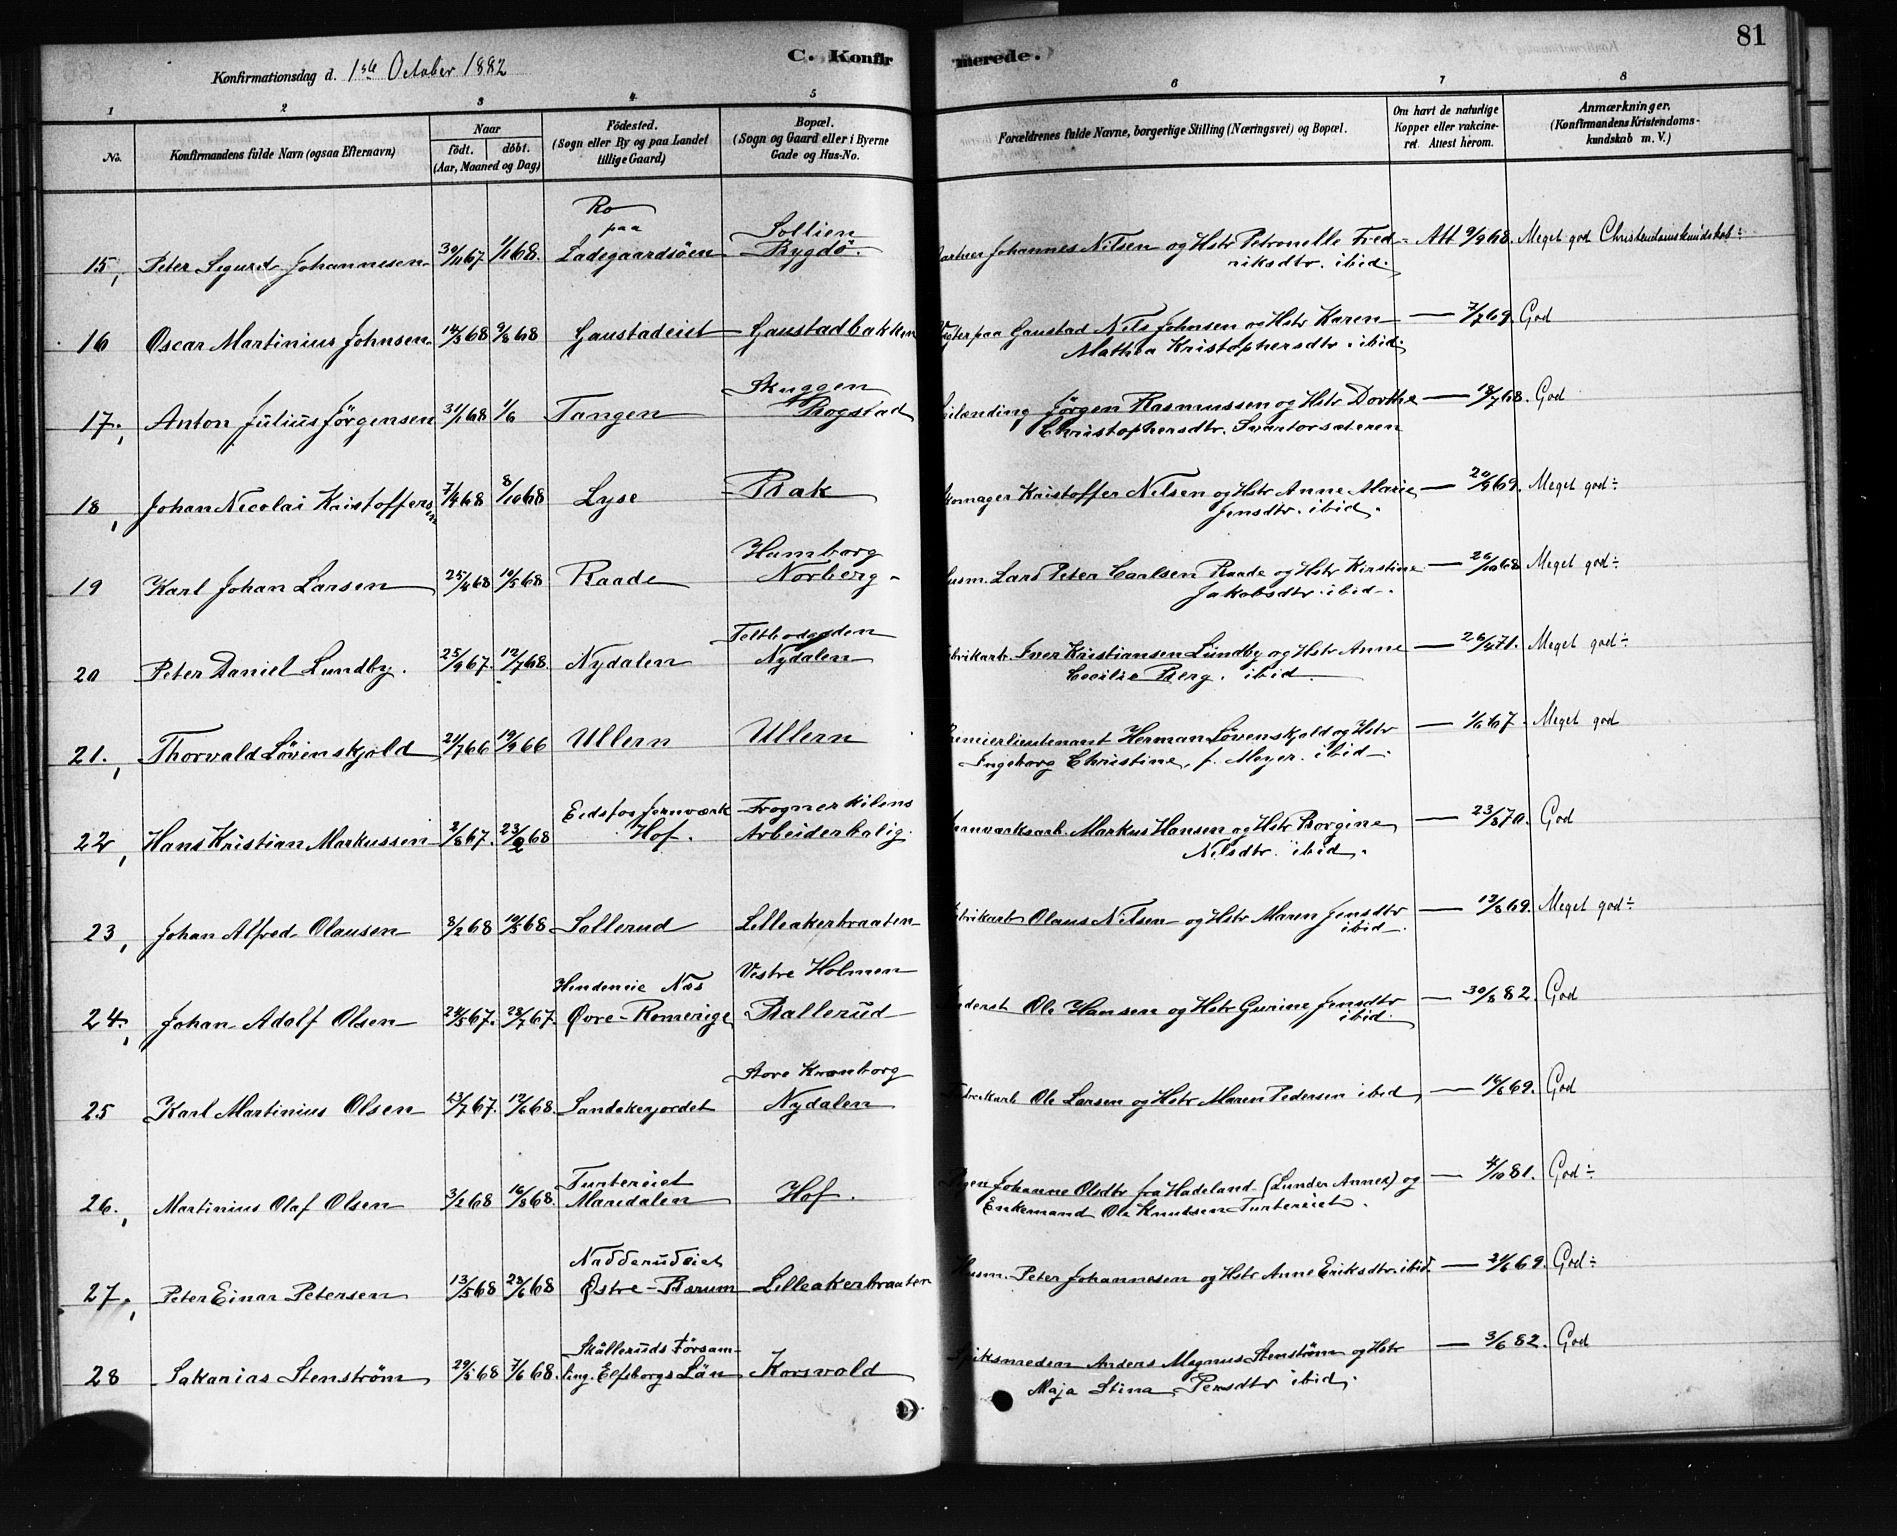 81
C. Konfirmerede.
Konfirmationsdag d. 1ste October 1882
1 2 3 4 5 6 7 8
No.
Konfirmandens fulde Navn (ogsaa Efternavn)
Naar
født. døbt.
(Aar, Maaned og Dag)
Födested.
(Sogn eller By og paa Landet
tillige Gaard)
Bopæl.
(Sogn og Gaard eller i Byerne
Gade og Hus-No.
Forældrenes fulde Navne, borgerlige Stilling (Næringsvei) og Bopæl.
Om havt de naturlige
Kopper eller vakcine-
ret. Attest herom.
Anmærkninger.
(Konfirmandens Kristendoms-
kundskab m. V.)
Ro
paa Sollien
15, Peter Sigurd Johannesen 30/11 67 1/1 68. Ladegaardsöen Bygdö. Gartner Johannes Nilsen og Hstr Petronelle Fred- Att 9/9 68. Meget god Christendomskundskab÷
riksdtr. ibid.
16 Oscar Martinius Johnsen 14/3 68 9/8 68 Gaustadeiet Gaustadbakken Vogter paa Gaustad Nils Johnsen og Hstr Karen — 7/7 69. God
Mathea Kristophersdtr. ibid.
Skuggen
17., Anton Julius Jörgensen 31/1 68 1/6 Tangen Rogstad Jörgen Rasmussen og Hstr Dorthe — 18/7 68. God
Christophersdtr. Svartorsæteren
18, Johan Nicolai Kristoffersen 7/4 68 8/10 68 Lyse Bak Skomager Kristoffer Nilsen og Hstr Anne Marie — 20/9 69. Meget god÷
Jensdtr. ibid.
Hamborg
19 Karl Johan Larsen 25/4 68 10/5 68 Raade Norberg Husm. Lars Peter Carlsen Raade og Hstr Kirstine — 26/10 68 Meget god÷
Jakobsdtr. ibid.
Teltbodgden
20 Peter Daniel Lundby. 25/9 67. 12/7 68. Nydalen Nydalen Fabrikarb. Iver Kristiansen Lundby og Hstr Anne — 26/4 71. Meget god÷
Cecilie Berg. ibid
21., Thorvald Lövenskjold 21/7 66 19/9 66 Ullern Ullern Premierlieutenant Herman Lövenskjold og Hstr — 1/6 67. Meget god
Ingeborg Christine, f. Meyer. ibid
Eidsfos Jernværk Frognerkilens
22, Hans Kristian Markussen 2/8 67. 23/2 68 Hof. Arbeiderbolig. Jernværksarb. Markus Hansen og Hstr Borgine — 23/8 70. God
Nilsdtr. ibid.
23, Johan Alfred Olausen 8/2 68 10/5 68 Sollerud Lilleakerbraaten Fabrikarb. Olaus Nilsen og Hstr Maren Jensdtr — 13/8 69. Meget god÷
ibid
Næs Vestre Holmen
24., Johan Adolf Olsen 24/5 67. 28/7 67. Øvre-Romerige Ballerud Inderst Ole Hansen og Hstr Gurine Jensdtr — 30/8 82. God
ibid.
Store Kronborg
25 Karl Martinius Olsen 23/7 67. 12/6 68. Sandakerjordet Nydalen Fabrikarb Ole Larsen og Hstr Maren Pedersen ibid — 16/6 69. God
Turtereiet
26., Martinius Olaf Olsen 3/2 68 16/8 68. Maridalen Hof. Pigen Johanne Olsdtr fra Hadeland (Lunder Annex) og — 4/10 81. God÷
Enkemand Ole Knudsen Turtereiet.
Nadderudeiet
27., Peter Einar Petersen 13/5 68 28/6 68 Østre-Bærum Lilleakerbraaten Husm. Peter Johannesen og Hstr Anne Eriksdtr. ibid. — 21/6 69. God÷
Skålleruds Församling.
28 Sakarias Stenström 29/5 68 7/6 68. Elfsborgs Län Korsvold Spiksmeden Anders Magnus Stenström og Hstr — 3/6 82. God
Maja Stina Persdtr ibid.